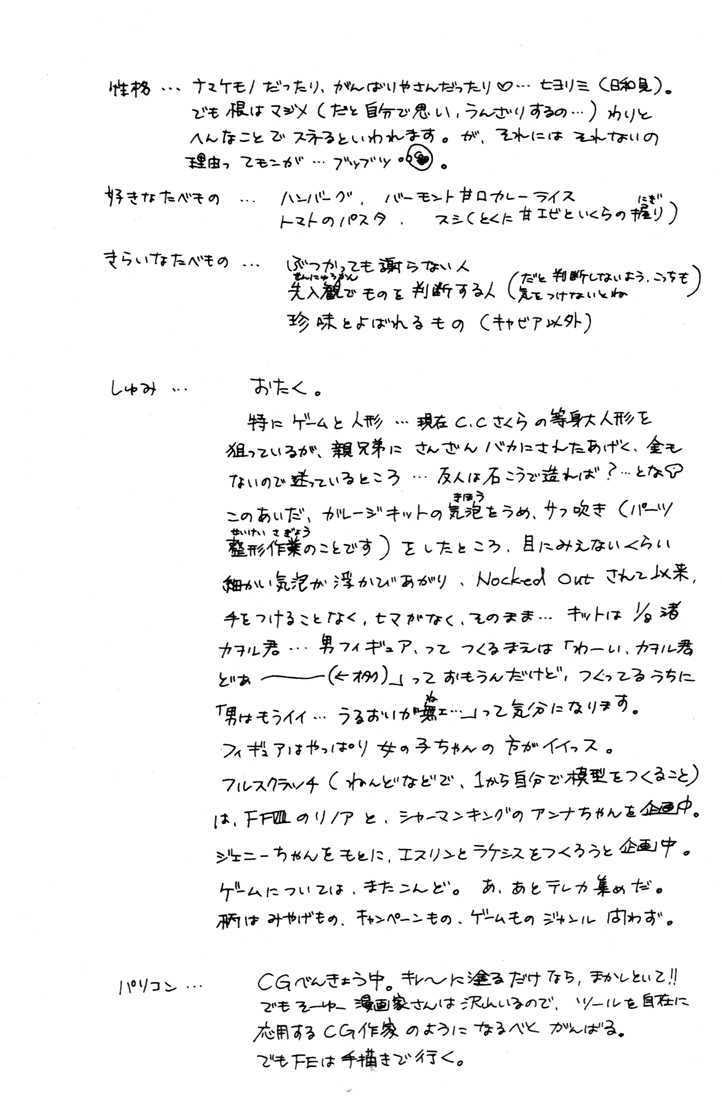 性格 … ナマケモノだったり、がんばりやさんだったり♡… 七ヨリミ(日和見)。
でも根はマジメ(だと自分で思い、うんざりするの…)わりと
へんなことでスネるといわれます。が、それにはそれなりの
理由ってモンが… ブツブツ。
好きなたべもの … ハンバーグ、バーモント甘口カレーライス
トマトのパスタ、スシ(とくに甘エビといくらの握り)
にぎ
きらいなたべもの … ぶつかっても謝らない人
せんにゅうかん
先入観でものを判断する人(だと判断しないよう、こっちも
気をつけないとね)
珍味とよばれるもの(キャビア以外)
しゅみ … おたく。
特にゲームと人形 … 現在C.Cさくらの等身大人形を
狙っているが、親兄弟にさんざんバカにされたあげく、金も
ないので迷っているところ … 友人は石こうで造れば?…とな
きほう
このあいだ、ガレージキットの気泡をうめ、サフ吹き(パーツ
せいけいさぎょう
整形作業のことです)をしたところ、目にみえないくらい
細かい気泡が浮かびあがり、Nocked Outされて以来、
手をつけることなく、セマがなく、そのまま… キットは1/8渚
カヲル君 … 男フィギュアって つくるまえは「わーい、カヲル君
どぁ―――(←オタク)」っておもうんだけど、つくってるうちに
ね
「男はもうイイ… うるおいが無ェ…」って気分になります。
フィギュアはやっぱり女の子ちゃんの方がイイっス。
フルスクラッチ(ねんどなどで、1から自分で模型をつくること)
は、FFⅧのリノアと、シャーマンキングのアンナちゃんを企画中。
ジェニーちゃんをもとに、エスリンとラケシスをつくろうと企画中。
ゲームについては、またこんど。あ、あとテレカ集めだ。
柄はみやげもの、キャンペーンもの、ゲームものジャンル問わず。
パソコン … CGべんきょう中。キレ〜に塗るだけなら、まかしといて!!
でもそーゆー漫画家さんは沢山いるので、ツールを自在に
応用するCG作家のようになるべとがんばる。
でもFEは手描きで行く。